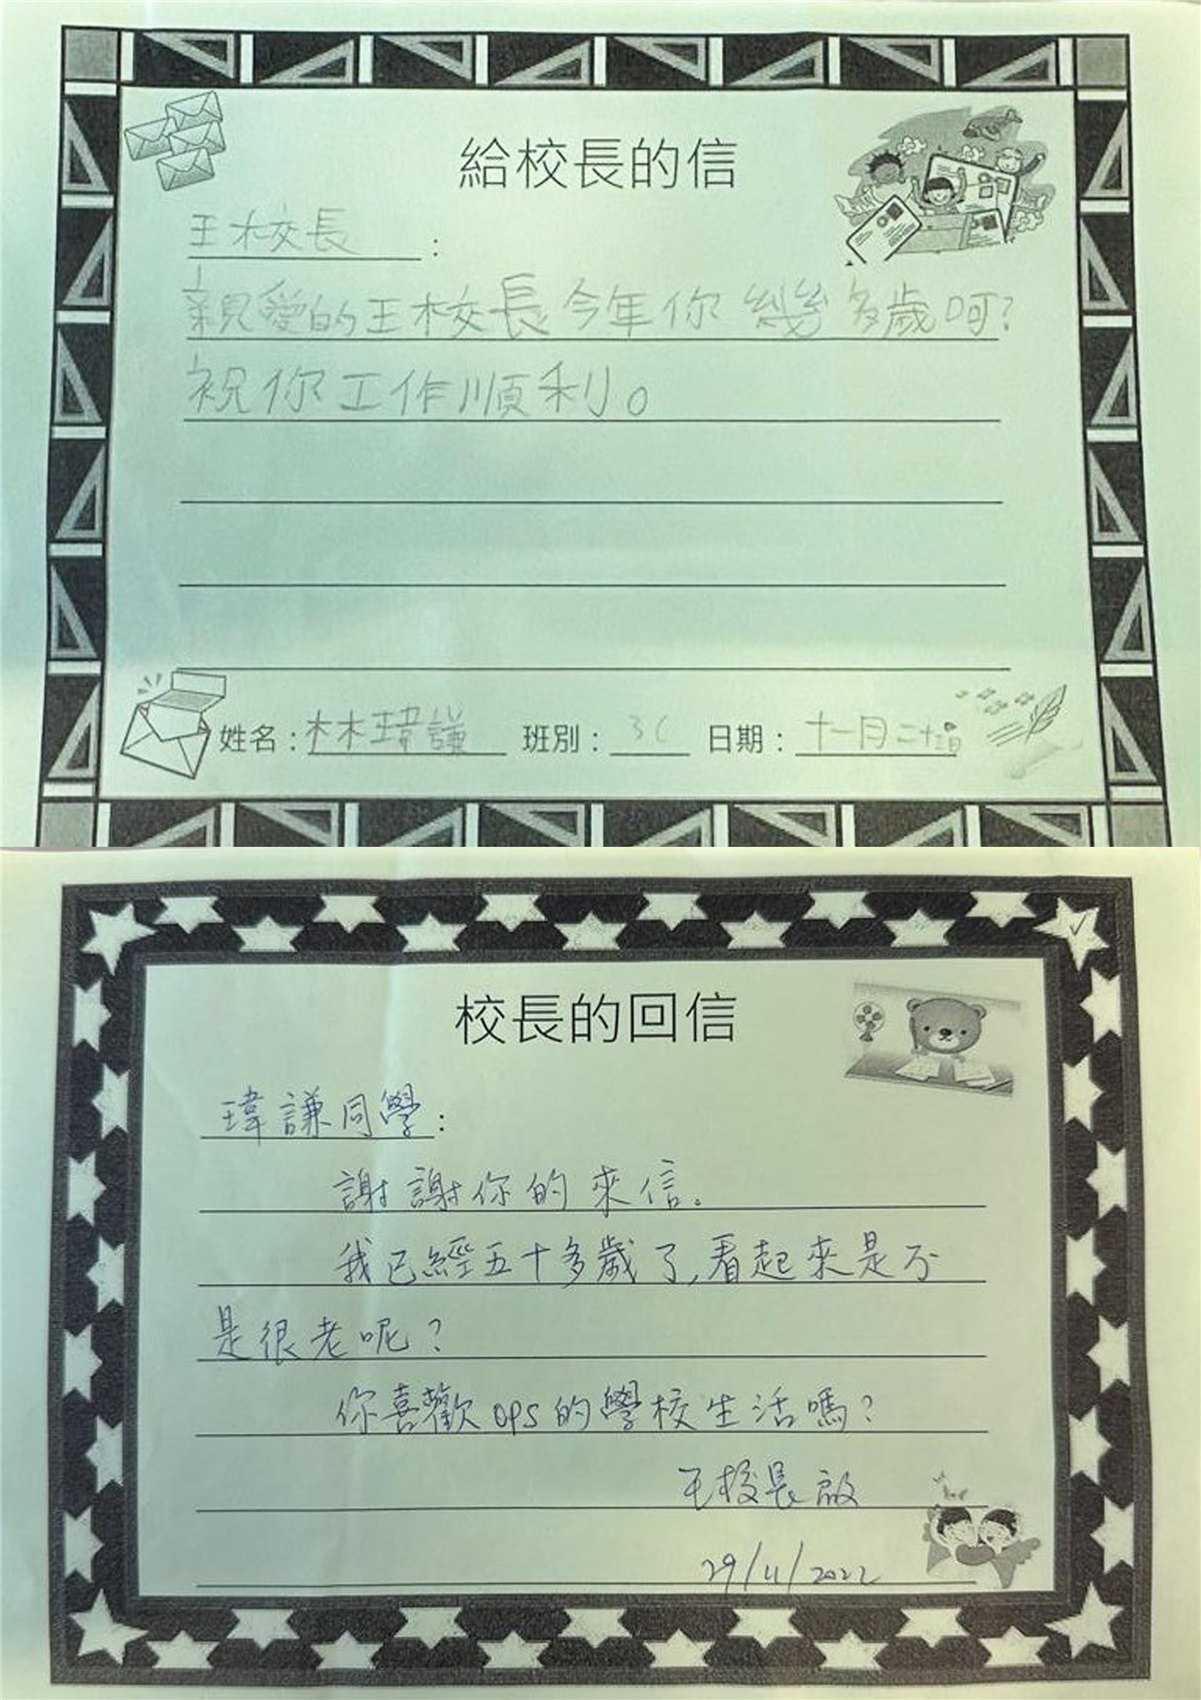 給校長的信
王校長：
親愛的王校長今年你幾多歲呵?
祝你工作順利。
姓名：林瑋謙 班別：3C 日期：十一月二十三日
校長的回信
瑋謙同學：
謝謝你的來信。
我已經五十多歲了,看起來是不
是很老呢？
你喜歡OPS的學校生活嗎？
王校長啟
29/11/2022